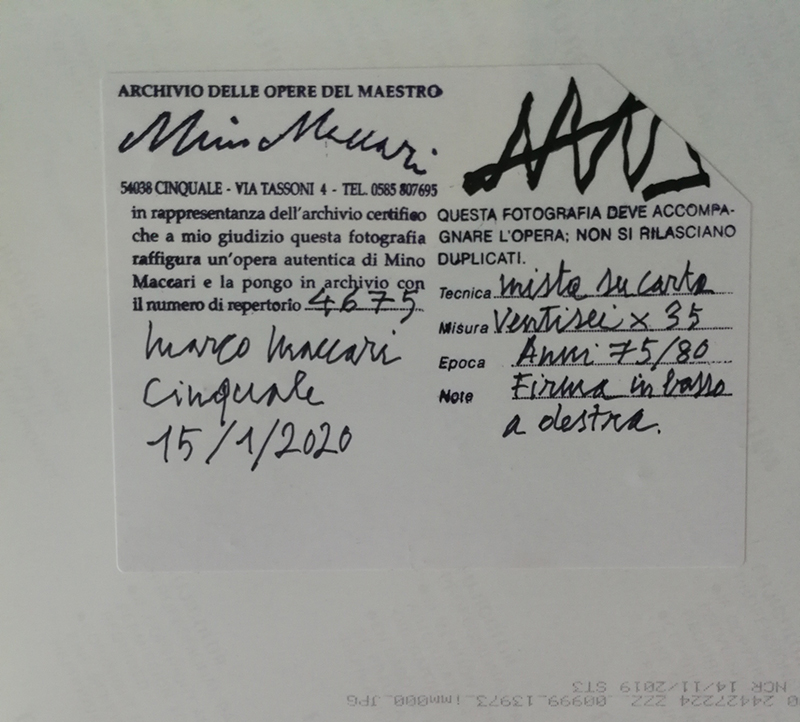 ARCHIVIO DELLE OPERE DEL MAESTRO
Mino Maccari
54038 CINQUALE - VIA TASSONI 4 - TEL. 0585 807695
in rappresentanza dell'archivio certifico
che a mio giudizio questa fotografia
raffigura un'opera autentica di Mino
Maccari e la pongo in archivio con
il numero di repertorio 4675
Marco Maccari
Cinquale
15/1/2020
QUESTA FOTOGRAFIA DEVE ACCOMPA-
GNARE L'OPERA; NON SI RILASCIANO
DUPLICATI.
Tecnica mista su carta
Misura Ventisei x 35
Epoca Anni 75/80
Note Firma in basso
a destra.
0 24427224 ZZZ 00999_13973_imm000_JPG
NCR 14/11/2019 ST3